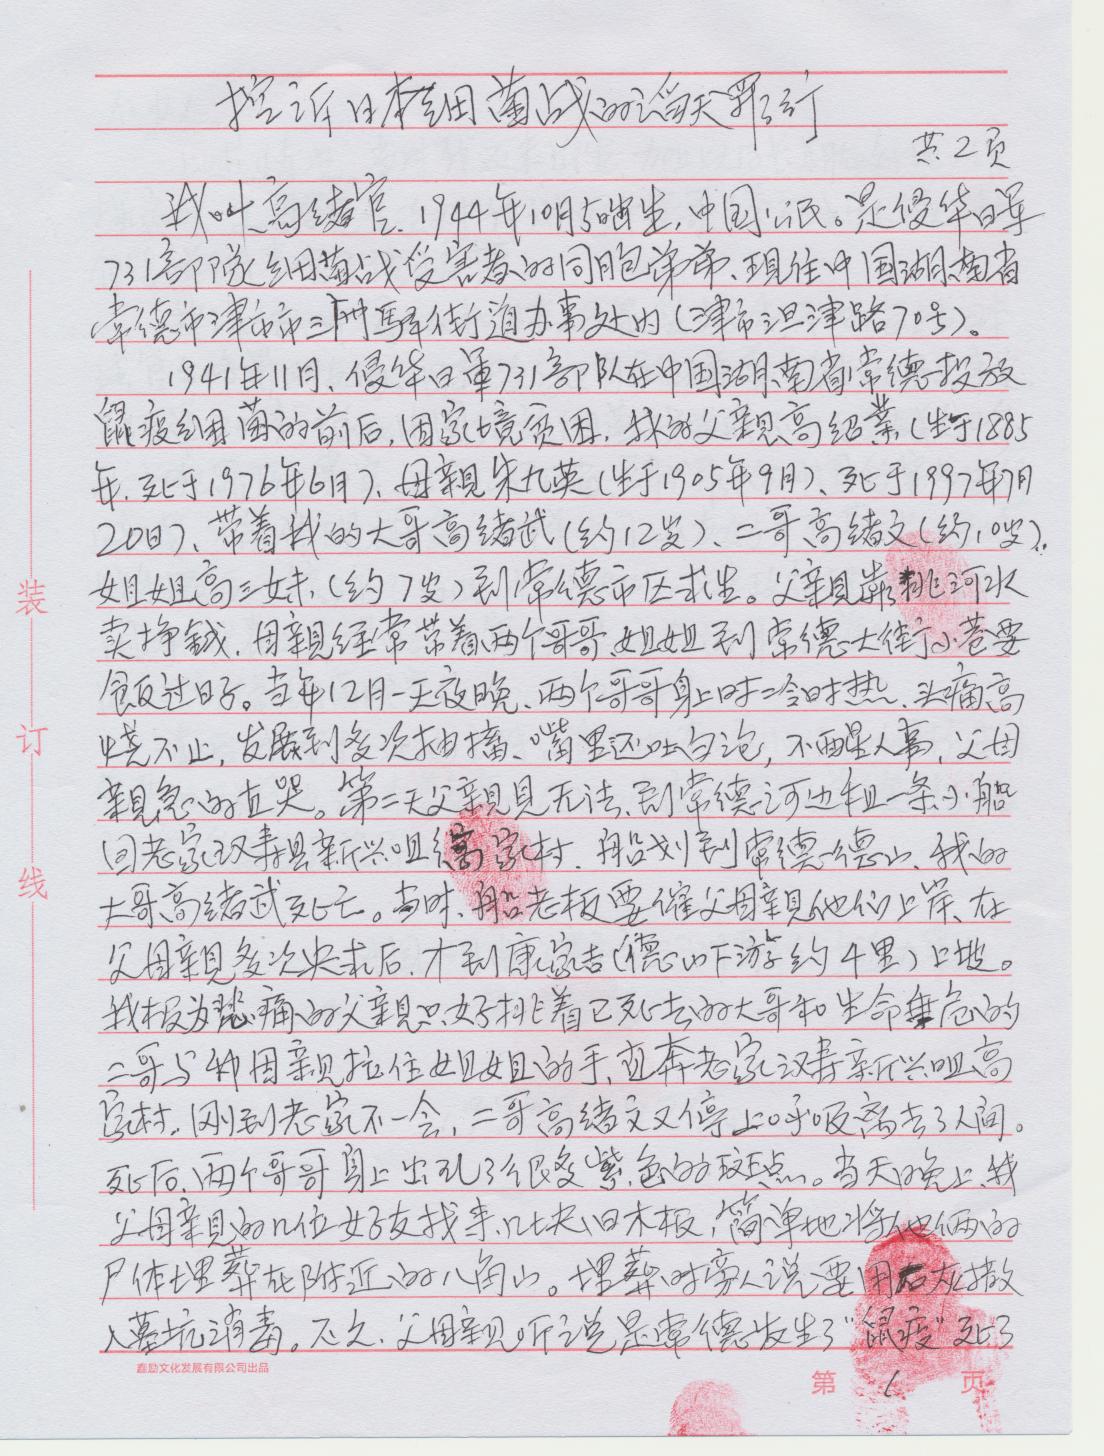 控诉日本细菌战的滔天罪行
共2页
我叫高绪官，1944年10月5日出生，中国公民。是侵华日军
731部队细菌战受害者的同胞弟弟、现住中国湖南省
常德市津市市三洲驿街道办事处内（津市沮津路70号）。
1941年11月，侵华日军731部队在中国湖南省常德投放
鼠疫细菌的前后，因家境贫困，我的父亲高绍业（生于1885
年，死于1976年6月）、母亲朱九英（生于1905年9月）、死于1997年7月
20日）、带着我的大哥高绪武（约12岁）、二哥高绪文（约10岁）、
姐姐高三妹（约7岁）到常德市区求生。父亲靠挑河水
卖挣钱，母亲经常带着两个哥哥、姐姐到常德大街小巷要
饭过日子。当年12月一天夜晚，两个哥哥身上时冷时热、头痛高
烧不止，发展到多次抽搐、嘴里还吐白沫，不醒人事，父母
亲急的直哭。第二天父亲见无法、到常德河边租一条小船
回老家汉寿县新兴咀高家村，船划到常德德山，我的
大哥高绪武死亡。当时、船老板要催父母亲他们上岸、在
父母亲多次央求后，才到康家吉（德山下游约4里）上坡。
我极为悲痛的父亲只好挑着已死去的大哥和生命垂危的
二哥与我母亲拉住姐姐的手，直奔老家汉寿新兴咀高
家村，刚到老家不一会，二哥高绪文又停上呼吸离去了人间。
死后，两个哥哥身上出现了很多紫色的斑点。当天晚上，我
父母亲的几位好友找来几块旧木板，简单地将他俩的
尸体埋葬在附近的八角山。埋葬时旁人说要用石灰撒
入墓坑消毒。不久，父母亲听说是常德发生了“鼠疫”死了
装
订
线
鑫励文化发展有限公司出品
第 1 页